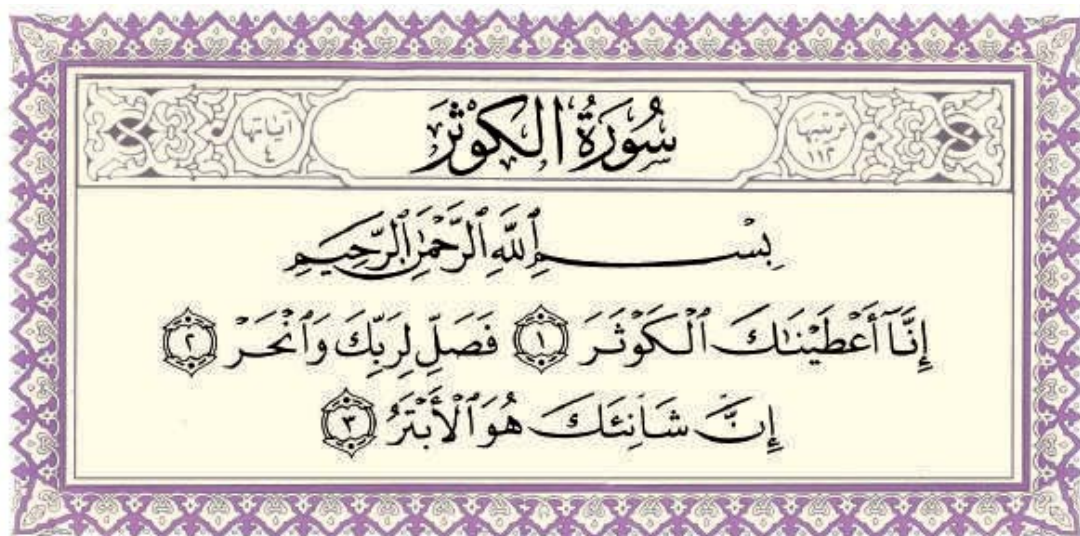 ترتيبها ١١٢ سُورَةُ الكَوْثَرِ آياتها ٤
بِسْمِ ٱللَّهِ ٱلرَّحْمَٰنِ ٱلرَّحِيمِ
إِنَّآ أَعْطَيْنَٰكَ ٱلْكَوْثَرَ ١ فَصَلِّ لِرَبِّكَ وَٱنْحَرْ ٢
إِنَّ شَانِئَكَ هُوَ ٱلْأَبْتَرُ ٣